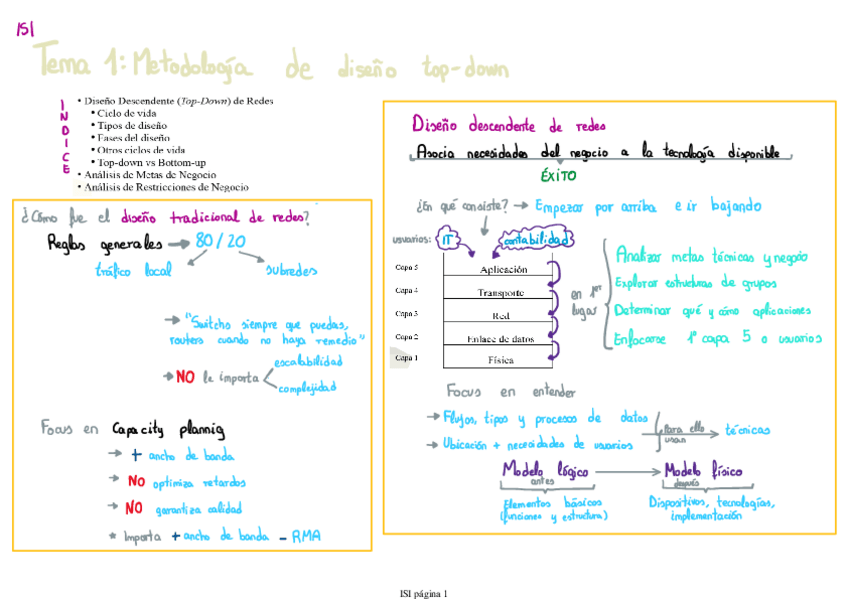 ISI
Tema 1: Metodología de diseño top-down
INDICE
• Diseño Descendente (Top-Down) de Redes
• Ciclo de vida
• Tipos de diseño
• Fases del diseño
• Otros ciclos de vida
• Top-down vs Bottom-up
• Análisis de Metas de Negocio
• Análisis de Restricciones de Negocio
¿Cómo fue el diseño tradicional de redes?
Reglas generales → 80/20
tráfico local
subredes
→ "Switchs siempre que puedas,
routers cuando no haya remedio"
→ NO le importa
escalabilidad
complejidad
Focus en Capacity plannig
→ + ancho de banda
→ NO optimiza retardos
→ NO garantiza calidad
* Importa + ancho de banda - RMA
Diseño descendente de redes
Asocia necesidades del negocio a la tecnología disponible
ÉXITO
¿En qué consiste? → Empezar por arriba e ir bajando
usuarios: IT contabilidad
Capa 5 Aplicación
Capa 4 Transporte
Capa 3 Red
Capa 2 Enlace de datos
Capa 1 Física
en 1er
lugar
Analizar metas técnicas y negocio
Explorar estructuras de grupos
Determinar qué y cómo aplicaciones
Enfocarse 1º capa 5 o usuarios
Focus en entender
→ Flujos, tipos y procesos de datos
→ Ubicación + necesidades de usuarios
para ello
usan
técnicas
Modelo lógico → Modelo físico
antes
después
Elementos básicos
(funciones y estructura)
Dispositivos, tecnologías,
implementación
ISI página 1